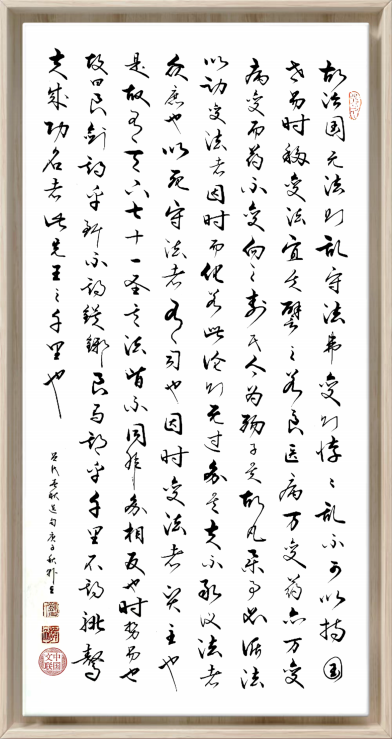 故治国无法则乱守法弗变则悖〻乱不可以持国
世易时移变法宜矣譬之若良医病万变药亦万变
病变而药不变向之寿民今为殇子矣故凡举事必循法
以动变法者因时而化若此论则无过务矣夫不敢议法者
众庶也以死守法者有司也因时变法者贤主也
是故有天下七十一圣其法皆不同非务相反也时势异也
故曰良剑期乎断不期镆铘良马期乎千里不期骥骜
夫成功名者此先王之千里也
吕氏春秋选句庚子秋
中国文联